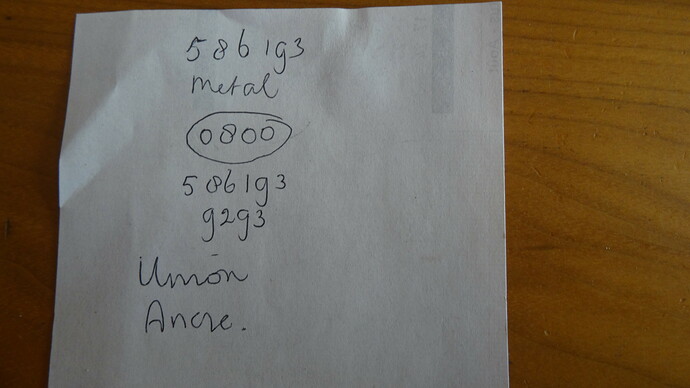 586193
Metal
0800
586193
9293
Union
Ancre.